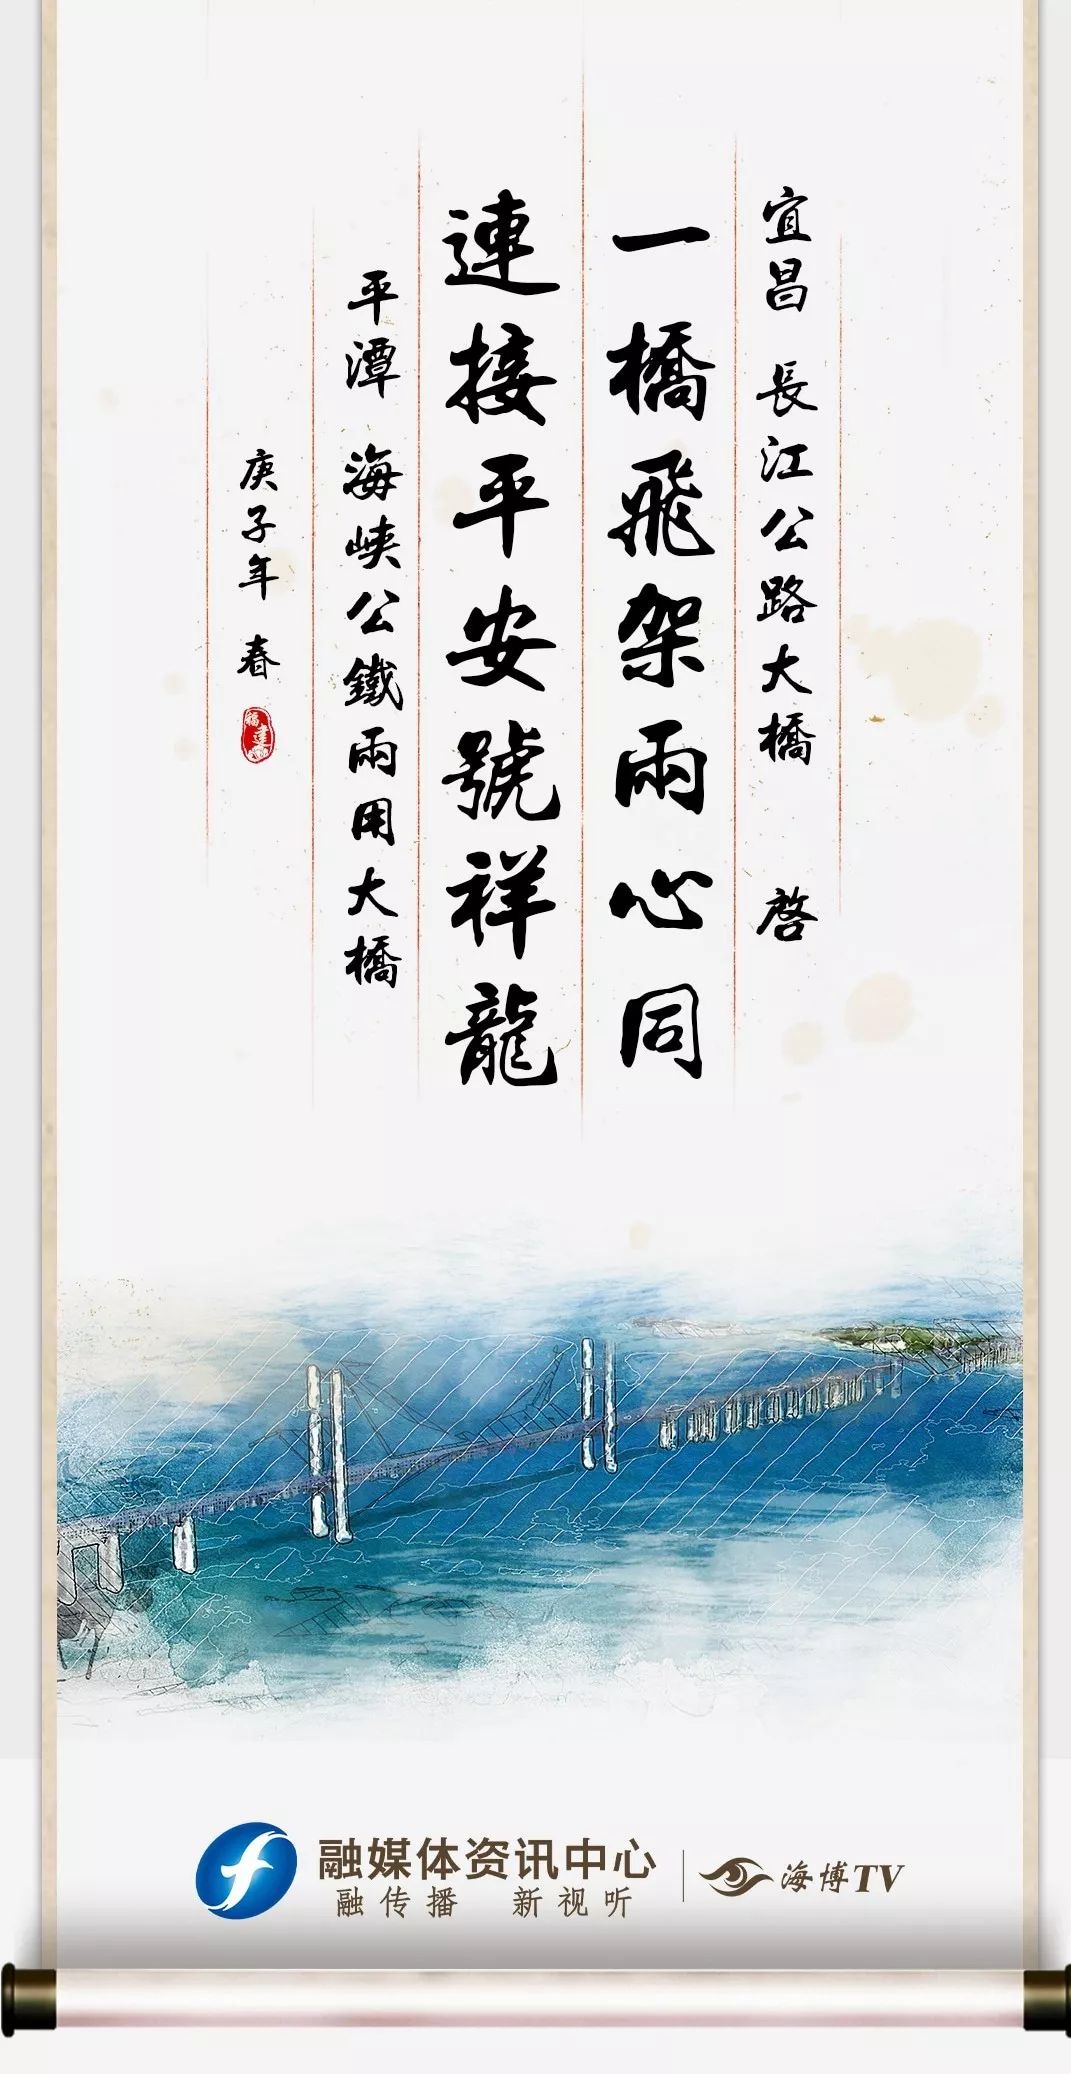 宜昌 長江公路大橋 啓
一橋飛架兩心同
連接平安號祥龍
平潭 海峡公鐵兩用大橋
庚子年 春
福建
融媒体资讯中心
融传播 新视听
海博TV